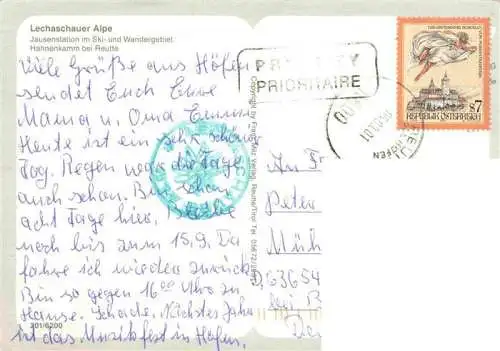 Lechaschauer Alpe
Jausenstation im Ski- und Wandergebiet
Hahnenkamm bei Reutte
Viele Grüße aus Höfen
sendet Euch Eure
Mama u. Oma Emmi
Heute ist ein sehr schöner
Tag. Regen war die Tage
auch schon. Bin schon
acht Tage hier, Bleibe
noch bis zum 15.9. Da
fahre ich wieder zurück.
Bin so gegen 16 00 Uhr zu
Hause. Schade, Nächstes Jahr
ist das Musikfest in Höfen.
201/6200
PRIORITY
PRIORITAIRE
REPUBLIK ÖSTERREICH
s7
An
Peter
Müh
63654
bei B